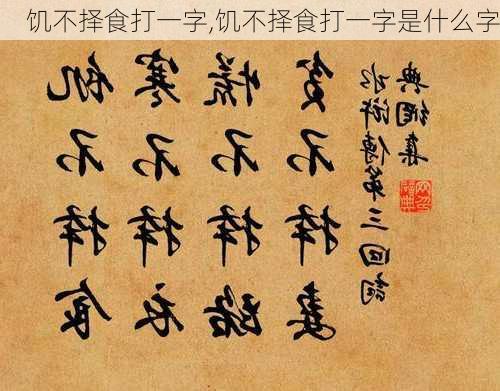 饥不择食打一字,饥不择食打一字是什么字
飢不择食
寒不择衣
慌不择路
贫不择妻
水滸傳第三回詞